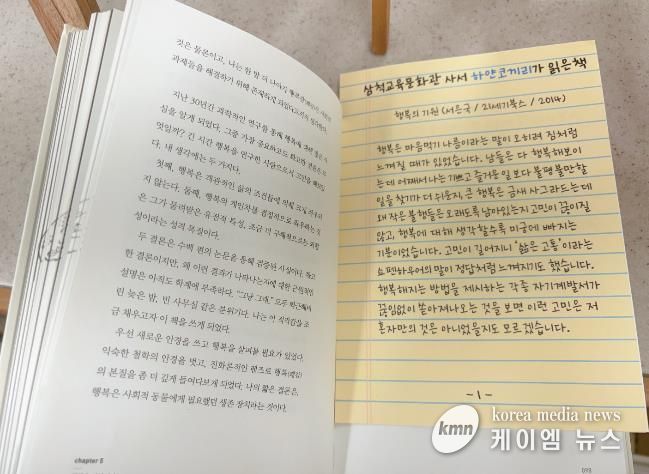 것은 물론이고, 나는 한 발 더 나아가
과제들을 해결하기 위해 존재하게 되었다고까지 생각한다.
지난 30년간 과학적인 연구를 통해 행복에 대한 많은 사
실을 알게 되었다. 그중 가장 중요하고도 확고한 결론은 무
엇일까? 긴 시간 행복을 연구한 사람으로서 고민을 해보았
다. 내 생각에는 두 가지다.
첫째, 행복은 객관적인 삶의 조건들에 의해 크게 좌우되
지 않는다. 둘째, 행복의 개인차를 결정적으로 좌우하는 것
은 그가 물려받은 유전적 특성, 조금 더 구체적으로는 외향
성이라는 성격 특질이다.
두 결론은 수백 편의 논문을 통해 검증된 사실이다. 확고
한 결론이지만, 왜 이런 결과가 나타나는지에 대한 근원적인
설명은 아직도 학계에 부족하다. "그냥 그래." 모두 퇴근해버
린 늦은 밤, 빈 사무실 같은 분위기다. 나는 이 적적함을 조
금 채우고자 이 책을 쓰게 되었다.
우선 새로운 안경을 쓰고 행복을 살펴볼 필요가 있었다.
익숙한 철학의 안경을 벗고, 진화론적인 렌즈로 행복(쾌감)
의 본질을 좀 더 깊게 들여다보게 되었다. 나의 짧은 결론은,
행복은 사회적 동물에게 필요했던 생존 장치라는 것이다.
chapter 5
삼척교육문화관 사서 하얀코끼리가 읽은책
행복의 기원 (서은국 / 21세기북스 / 2014)
행복은 마음먹기 나름이라는 말이 오히려 짐처럼
느껴질 때가 있었습니다. 남들은 다 행복해보이
는데 어째서나는 기쁘고 즐거운 일보다 불평불만할
일을 찾기가 더 쉬운지, 큰 행복은 금새 사그라드는데
왜 작은 불행들은 오래도록 남아있는지 고민이 끊이질
않고, 행복에 대해 생각할수록 미궁에 빠지는
기분이었습니다. 고민이 길어지니 '삶은 고통'이라는
쇼펜하우어의 말이 정답처럼 느껴지기도 했습니다.
행복해지는 방법을 제시하는 각종 자기계발서가
끊임없이 쏟아져나오는 것을 보면 이런 고민은 저
혼자만의 것은 아니었을지도 모르겠습니다.
- 1 -
kmn
korea media news
케이엠 뉴스